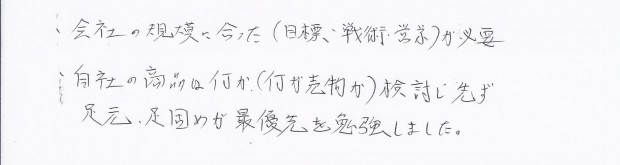 、会社の規模に合った(目標、戦術・営業)が必要
、自社の商品は何か、(何が売物か)検討し先ず
足元、足固めが最優先を勉強しました。